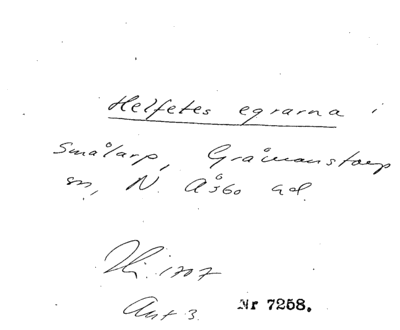 Helfetes egrarna i
Smålarp, Gråmanstorp
sn, N. Åsbo hd.
1707
Ant 3. Nr 7258.